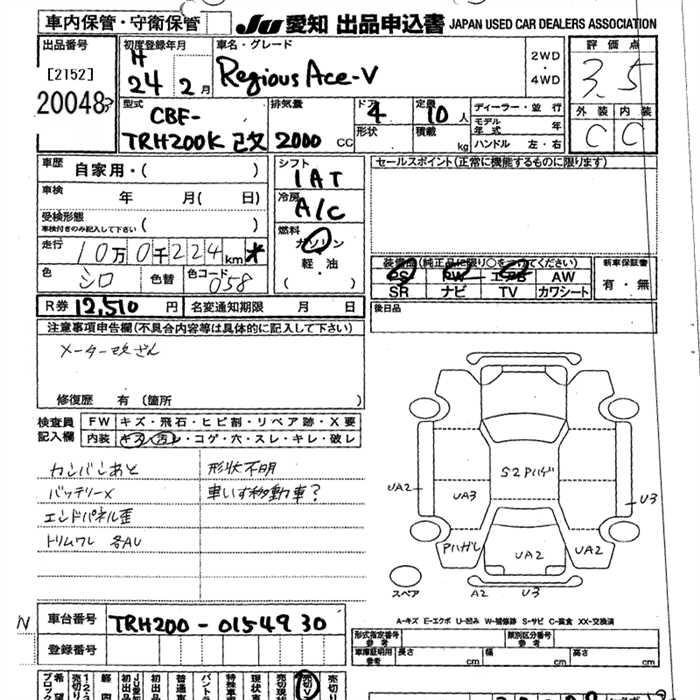 車内保管・守衛保管
JU 愛知 出品申込書 JAPAN USED CAR DEALERS ASSOCIATION
出品番号
[2152]
20048
初度登録年月
H
24年2月
車名・グレード
Regious Ace-V
2WD
・
4WD
評価点
3.5
外装 内装
C C
型式
CBF-
TRH200K 改
排気量
2000 CC
ドア
4
形状
定員
10人
積載
kg
ディーラー・並行
モデル年式 年
ハンドル 左・右
車歴
自家用・( )
車検
年 月( 日)
受検形態
車検付きのみ記入して下さい ( )
走行
10万0千224km *
色
シロ
色替
色コード
058
シフト
IAT
冷房
A/C
燃料
ガソリン
・
軽油
・
( )
セールスポイント(正常に機能するものに限ります)
装備品(純正品に限り○をつけてください)
PS PW エアB AW
SR ナビ TV カワシート
新車保証書
有・無
後日品
R券 12,510円
名変通知期限 月 日
注意事項申告欄(不具合内容等は具体的に記入して下さい)
メーター改ざん
修復歴 有(箇所 )
検査員
記入欄
FW キズ・飛石・ヒビ割・リペア跡・X要
内装 キズ・汚レ・コゲ・穴・スレ・キレ・破レ
カンバンあと
バッテリーX
エンドパネル歪
トリムワレ 各AU
形状不明
車いす移動車?
S2ハゲ
UA2
UA3
U3
Pハガレ
UA2
UA2
A2
U3
スペア
A-キズ E-エクボ U-凹み W-補修跡 S-サビ C-腐食 XX-交換済
N
車台番号
TRH200-0154930
登録番号
型式指定番号
参考
類別区分番号
参考
車庫証明用
参考
長さ cm
幅 cm
高さ cm